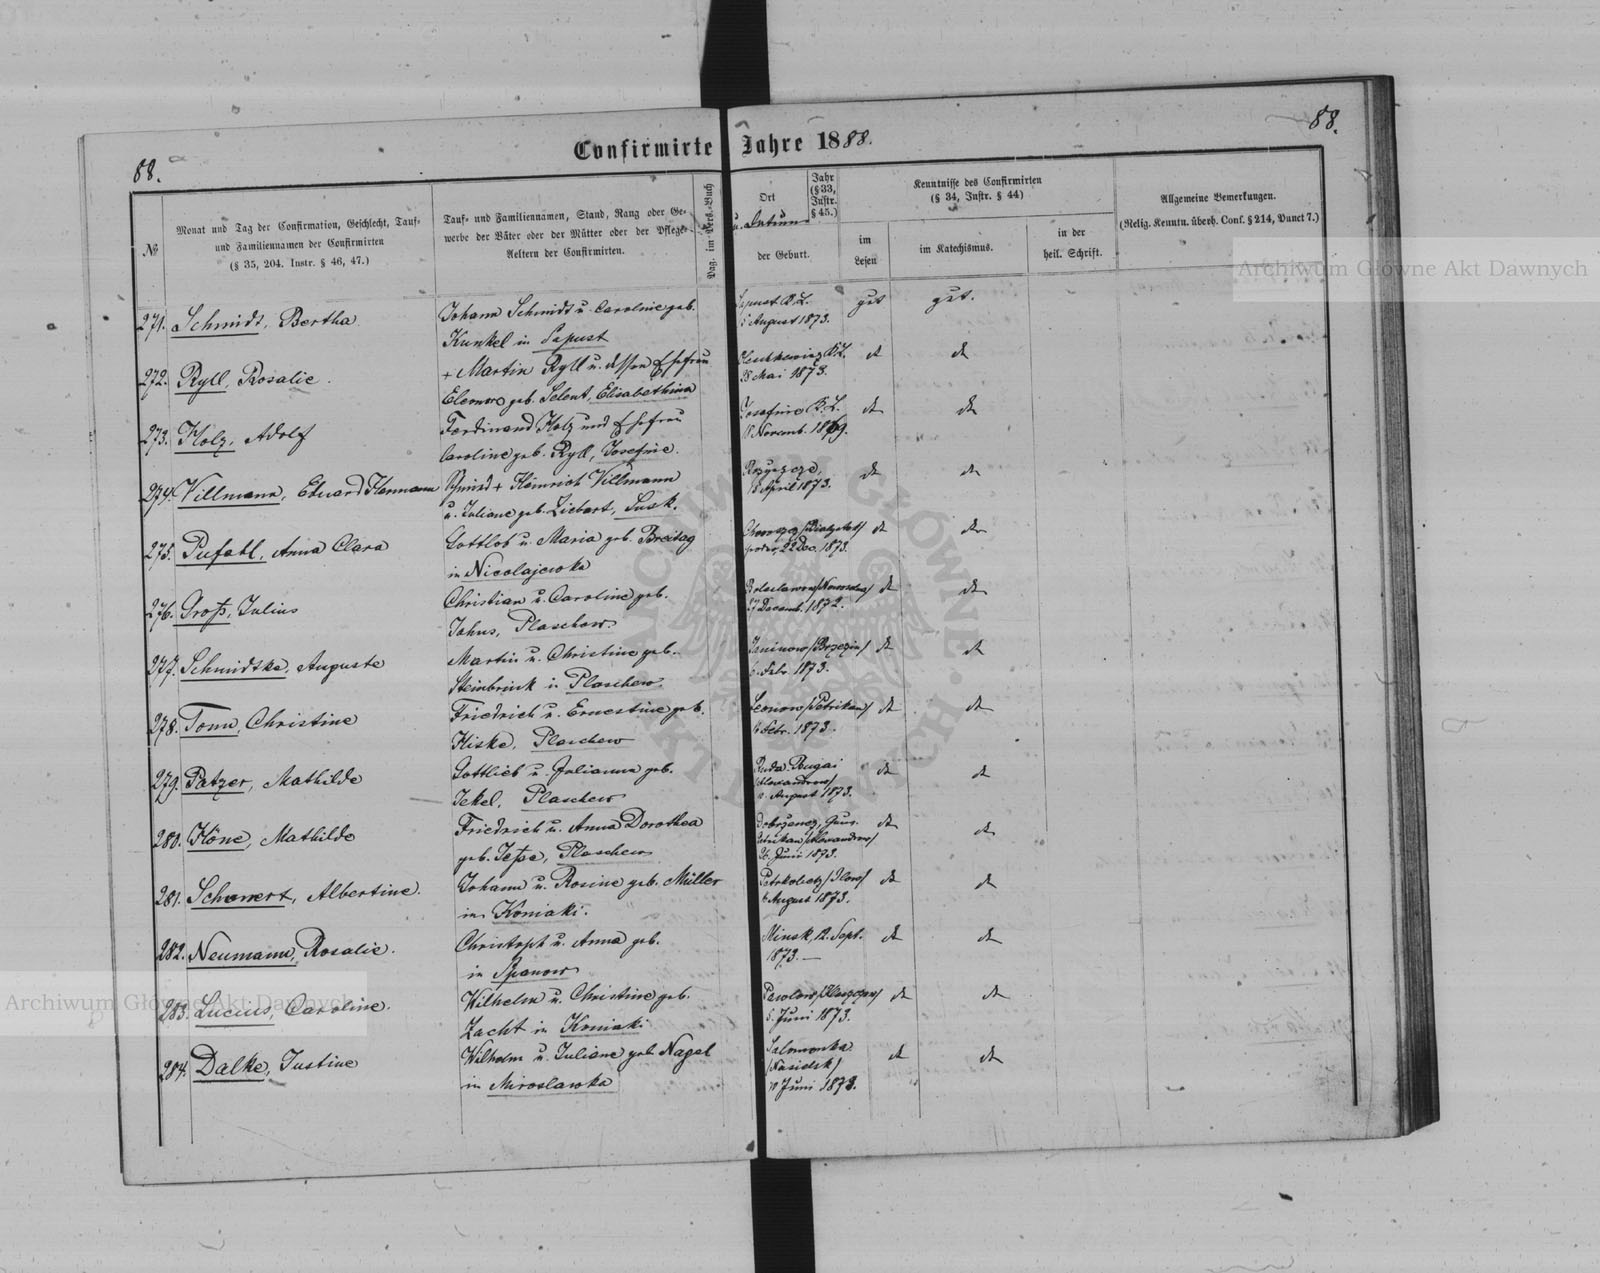 88.
88.
Confirmirte Jahre 1888.
№
Monat und Tag der Confirmation, Geschlecht, Tauf-
und Familiennamen der Confirmirten
(§ 35, 204. Instr. § 46, 47.)
Tauf- und Familiennamen, Stand, Rang oder Ge-
werbe der Väter oder der Mütter oder der Pflege-
Aeltern der Confirmirten.
Pag. im Pers.-Buch
Ort
u. Datum
der Geburt.
Jahr
(§ 33,
Instr.
§ 45.)
Kenntnisse des Confirmirten
(§ 34, Instr. § 44)
im
Lesen
im Katechismus.
in der
heil. Schrift.
Allgemeine Bemerkungen.
(Relig. Kenntn. überh. Conf. § 214, Punct 7.)
271. Schmidt, Bertha
Johann Schmidt u. Caroline geb.
Kunkel in Sapust
Sapust K.L.
August 1873.
gut gut.
272. Ryll, Rosalie.
+ Martin Ryll u. dessen Ehefrau
Eleonore geb. Selent, Elisabethina
K.L.
28 Mai 1873.
dt dt
273. Holz, Adolf
Ferdinand Holz und Ehefrau
Caroline geb. Ryll, Josefine.
Josefine K.L.
Novemb. 1869.
dt dt
274. Villmann, Eduard Hermann
Schmied + Heinrich Villmann
u. Juliane geb. Liebert, Lusk.
Rozyszcze,
18 April 1873.
dt dt
275. Pufahl, Anna Clara
Gottlob u. Maria geb. Breitag
in Nicolajewka
22 Dec. 1873.
dt dt
276. Groß, Julius
Christian u. Caroline geb.
Jahns, Plaschow.
27 Decemb. 1872.
dt dt
277. Schmidtke, Auguste
Martin u. Christine geb.
Steinbrink in Plaschew.
Janinow /Brzezin/
Febr. 1873.
dt dt
278. Tomm, Christine
Friedrich u. Ernestine geb.
Kiske, Plaschew
Leonow /Petrikau/
Febr. 1873.
dt dt
279. Patzer, Mathilde
Gottlieb u. Julianna geb.
Jekel, Plaschew
Ruda Bugai
/Alexandrow/
August 1873.
dt dt
280. Höne, Mathilde
Friedrich u. Anna Dorothea
geb. Jeße, Plaschew
Gouv.
Petrikau /Alexandrow/
26. Juni 1873.
dt dt
281. Schewert, Albertine.
Johann u. Rosine geb. Müller
in Koniaki.
August 1873.
dt dt
282. Neumann, Rosalie.
Christoph u. Anna geb.
in Spanow
Minsk, 12. Sept.
1873. —
dt dt
283. Lucius, Caroline.
Wilhelm u. Christine geb.
Zacht in Koniaki
5. Juni 1873.
dt dt
284. Dalke, Justine
Wilhelm u. Juliane geb. Nagel
in Miroslawka
Salomonka
/Nasielsk/
Juni 1873.
dt dt
Archiwum Główne Akt Dawnych
Archiwum Główne Akt Dawnych
ARCHIWUM GŁÓWNE AKT DAWNYCH